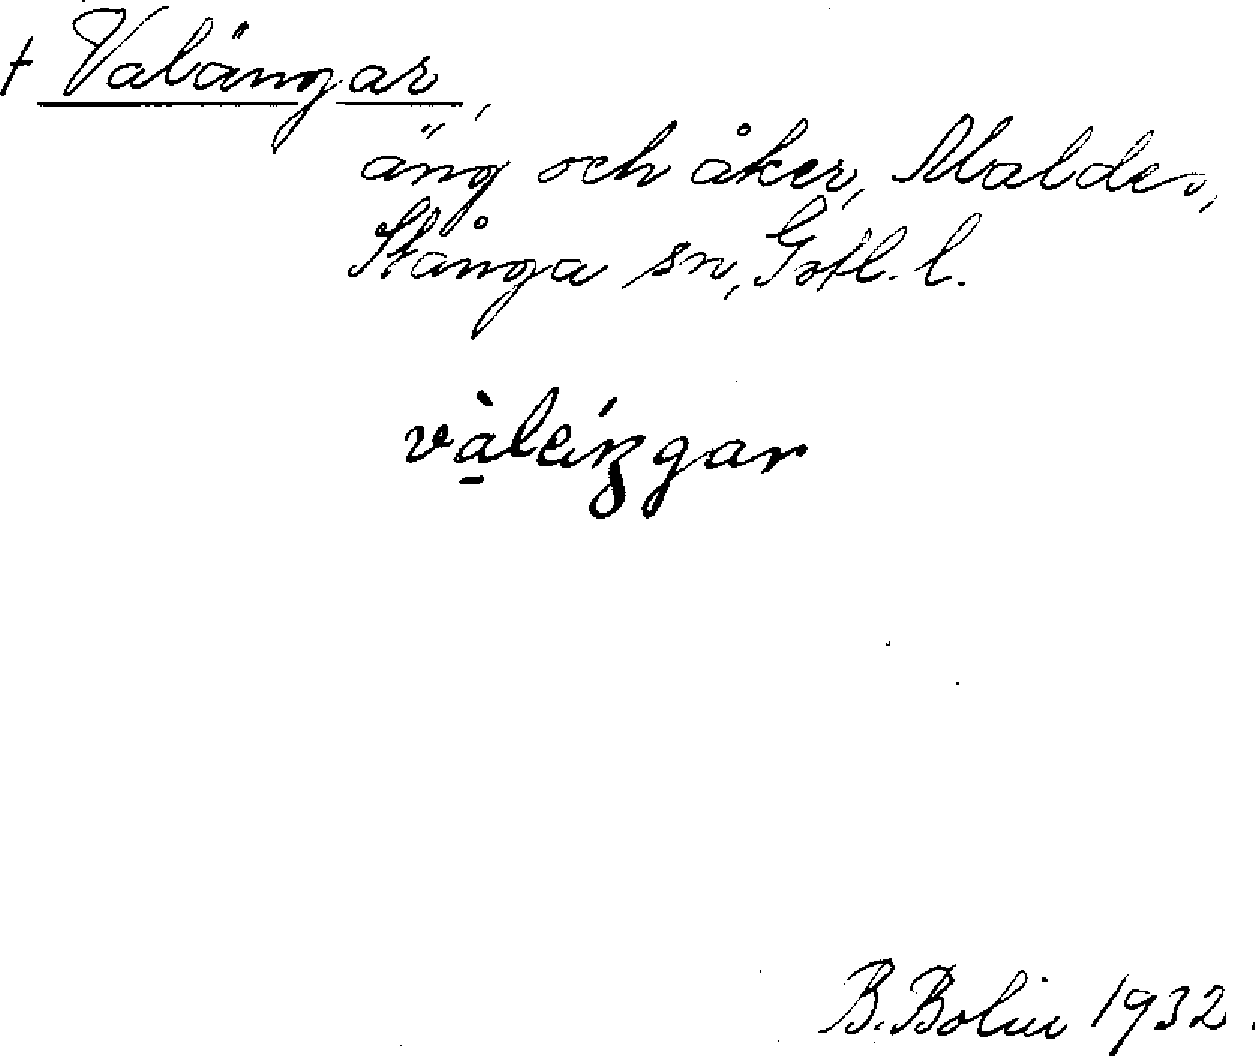 † Valängar,
äng och åker, Maldes,
Stånga sn, Gotl. l.
vàlei̯ŋgar
B. Bolin 1932.